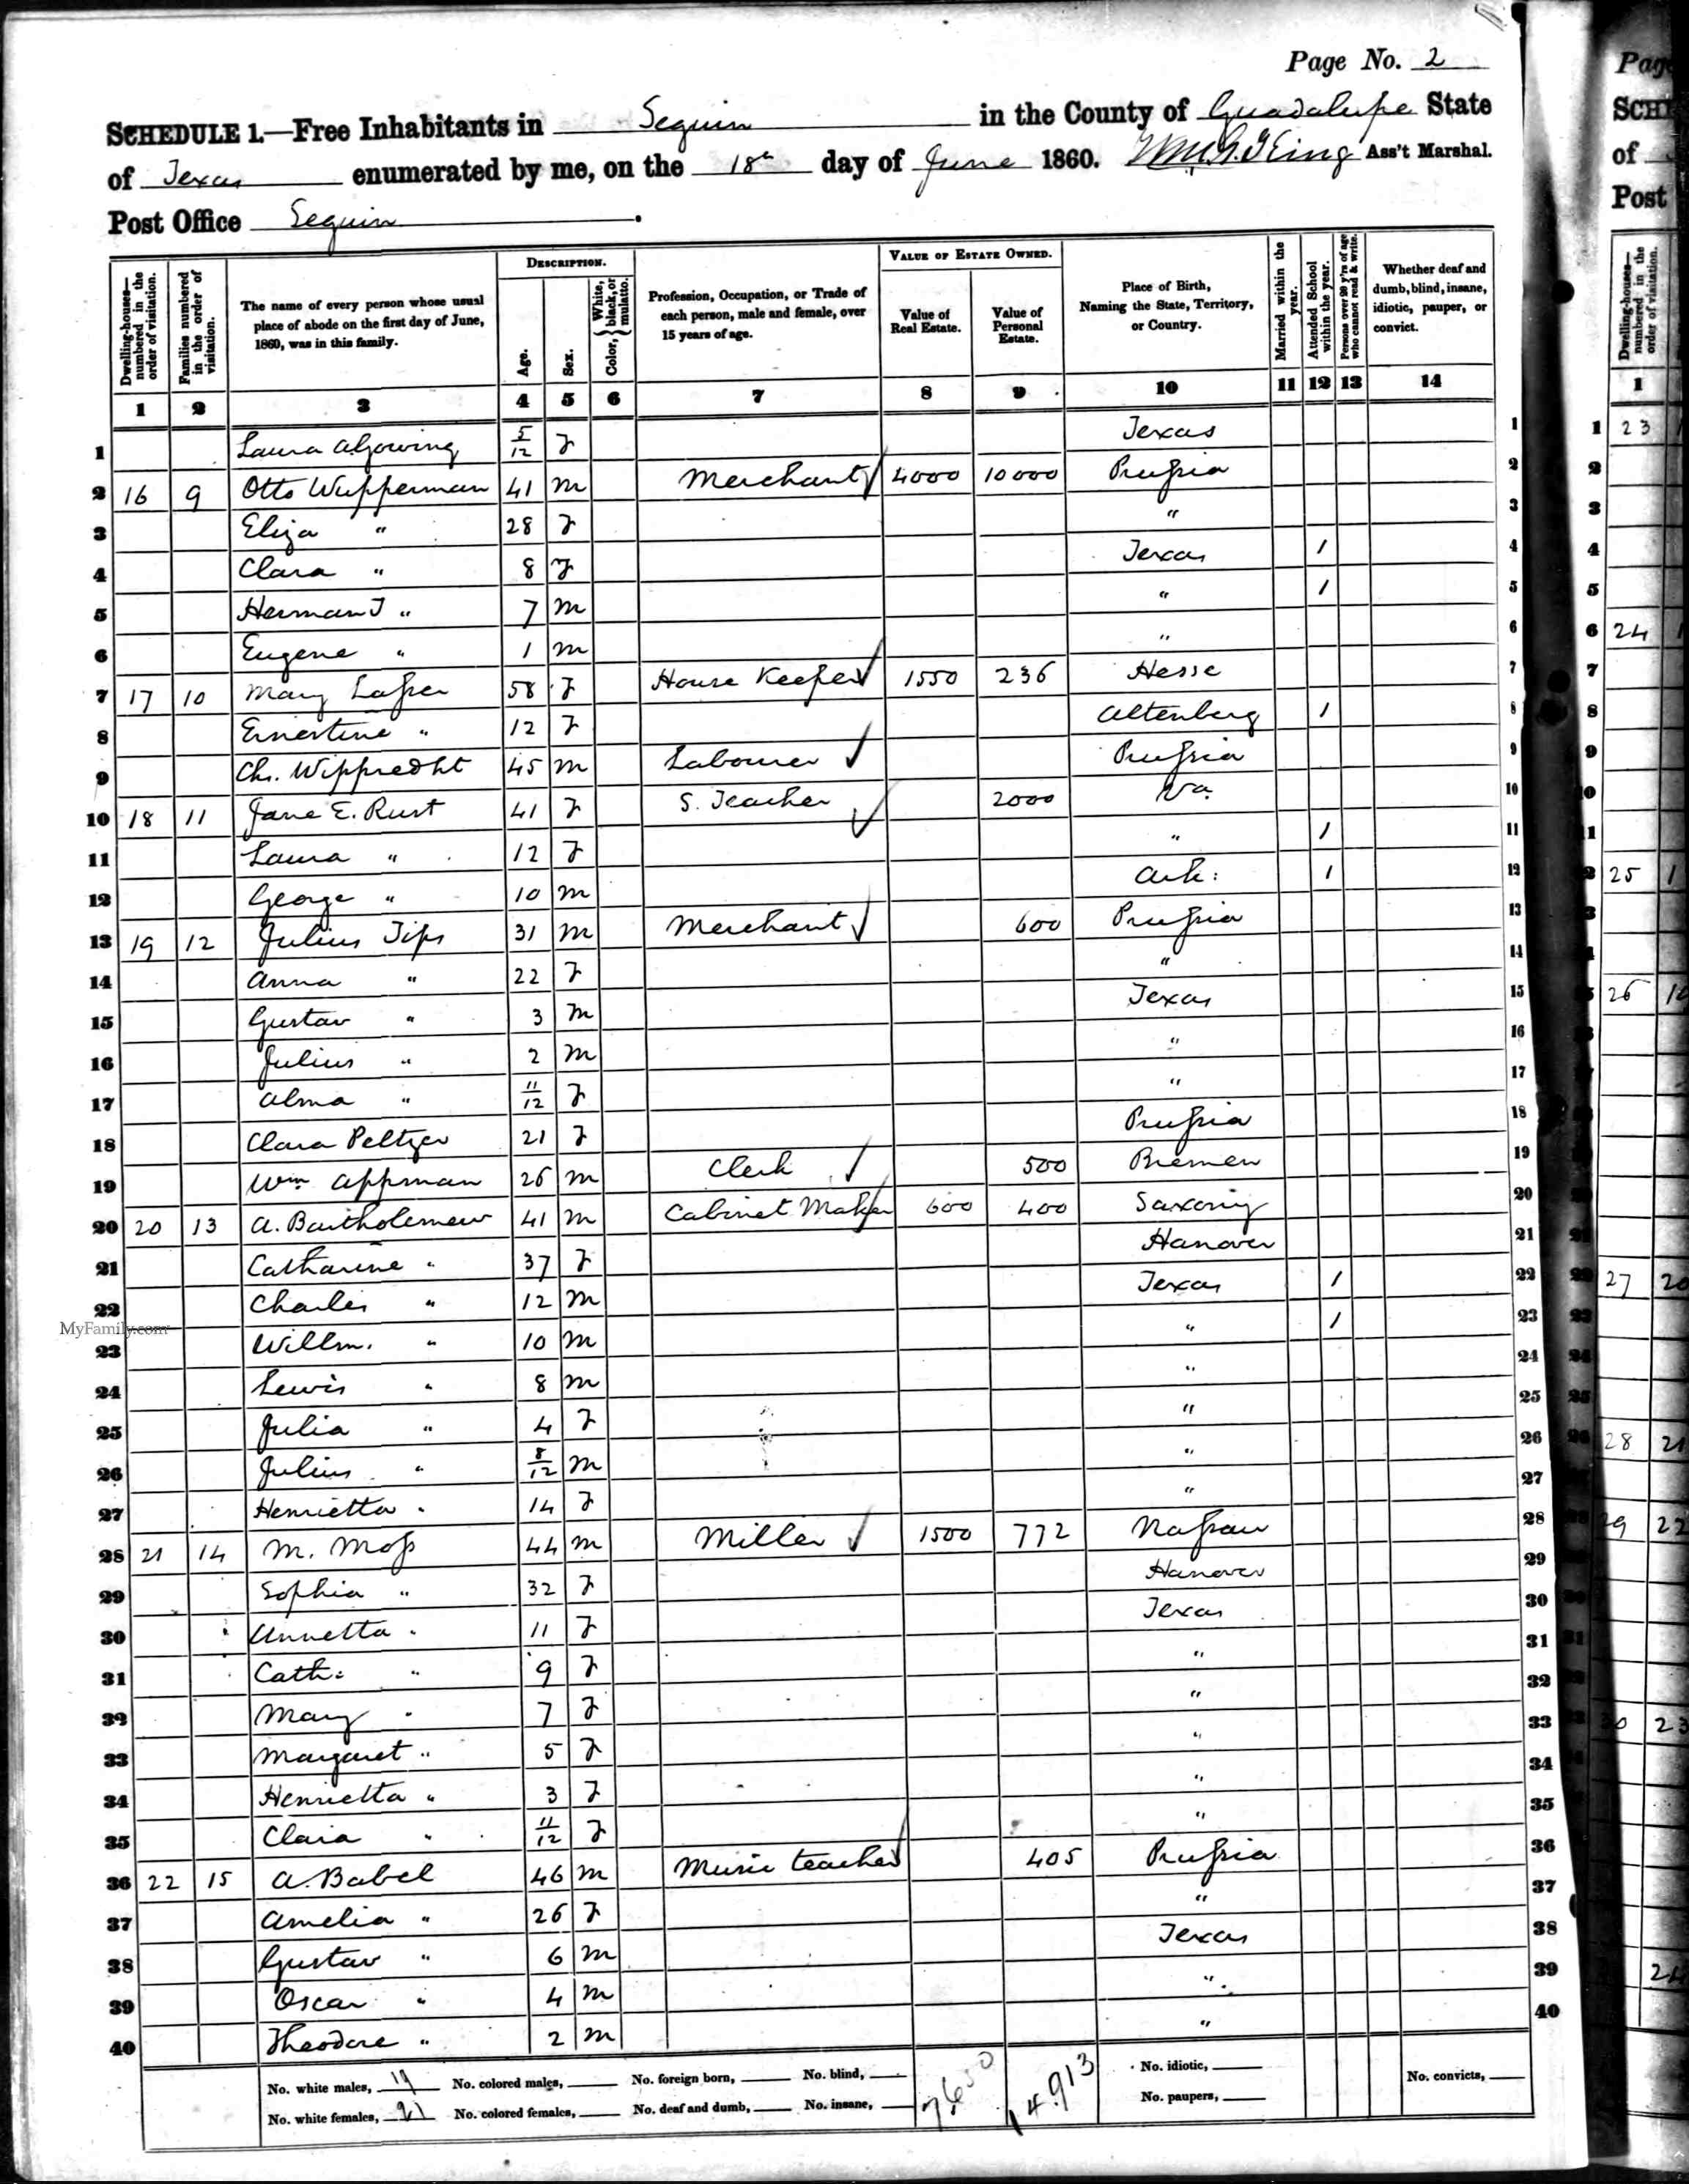 Page No. 2
SCHEDULE 1.—Free Inhabitants in Seguin in the County of Guadalupe State
of Texas enumerated by me, on the 18th day of June 1860. Ass't Marshal.
Post Office Seguin.
Dwelling-houses—numbered in the order of visitation.
Families numbered in the order of visitation.
The name of every person whose usual place of abode on the first day of June, 1860, was in this family.
DESCRIPTION.
Age.
Sex.
Color, { White, black, or mulatto.
Profession, Occupation, or Trade of each person, male and female, over 15 years of age.
VALUE OF ESTATE OWNED.
Value of Real Estate.
Value of Personal Estate.
Place of Birth, Naming the State, Territory, or Country.
Married within the year.
Attended School within the year.
Persons over 20 y'rs of age who cannot read & write.
Whether deaf and dumb, blind, insane, idiotic, pauper, or convict.
1 2 3 4 5 6 7 8 9 10 11 12 13 14
1 Laura 5/12 F Texas 1
2 16 9 Otto Wupperman 41 M Merchant 4000 10000 Prussia 2
3 Eliza " 28 F " 3
4 Clara " 8 F Texas 1 4
5 Herman J " 7 M " 1 5
6 Eugene " 1 M " 6
7 17 10 Mary Lasser 58 F House Keeper 1550 236 Hesse 7
8 Ernestine " 12 F Altenberg 1 8
9 Ch. Wippredht 45 M Labourer Prussia 9
10 18 11 Jane E. Rust 41 F S. Teacher 2000 Va. 10
11 Laura " 12 F " 1 11
12 George " 10 M Ark: 1 12
13 19 12 Julius Tips 31 M Merchant 600 Prussia 13
14 Anna " 22 F " 14
15 Gustav " 3 M Texas 15
16 Julius " 2 M " 16
17 Alma " 11/12 F " 17
18 Clara Peltzer 21 F Prussia 18
19 Wm Appman 26 M Clerk 500 Bremen 19
20 20 13 A. Bartholemew 41 M Cabinet Maker 600 400 Saxony 20
21 Catharine " 37 F Hanover 21
22 Charles " 12 M Texas 1 22
MyFamily.com
23 Willm. " 10 M " 1 23
24 Lewis " 8 M " 24
25 Julia " 4 F " 25
26 Julius " 8/12 M " 26
27 Henrietta " 14 F " 27
28 21 14 M. Moss 44 M Miller 1500 772 Nassau 28
29 Sophia " 32 F Hanover 29
30 Annetta " 11 F Texas 30
31 Cath: " 9 F " 31
32 Mary " 7 F " 32
33 Margaret " 5 F " 33
34 Henrietta " 3 F " 34
35 Clara " 11/12 F " 35
36 22 15 A. Babel 46 M Music teacher 405 Prussia 36
37 Amelia " 26 F " 37
38 Gustav " 6 M Texas 38
39 Oscar " 4 M " 39
40 Theodore " 2 M " 40
No. white males, 19 No. colored males, No. foreign born, No. blind, 7650 14.913 No. idiotic, No. convicts,
No. white females, 21 No. colored females, No. deaf and dumb, No. insane, No. paupers,